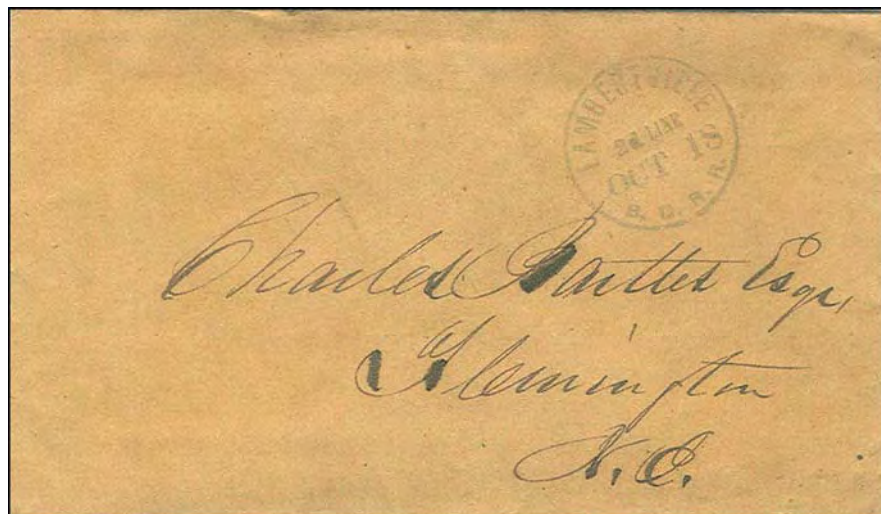 LAMBERTVILLE S
2d. LINE
OCT 18
B. D. R. R.
Charles Bartles Esqr,
Flemington
N. J.